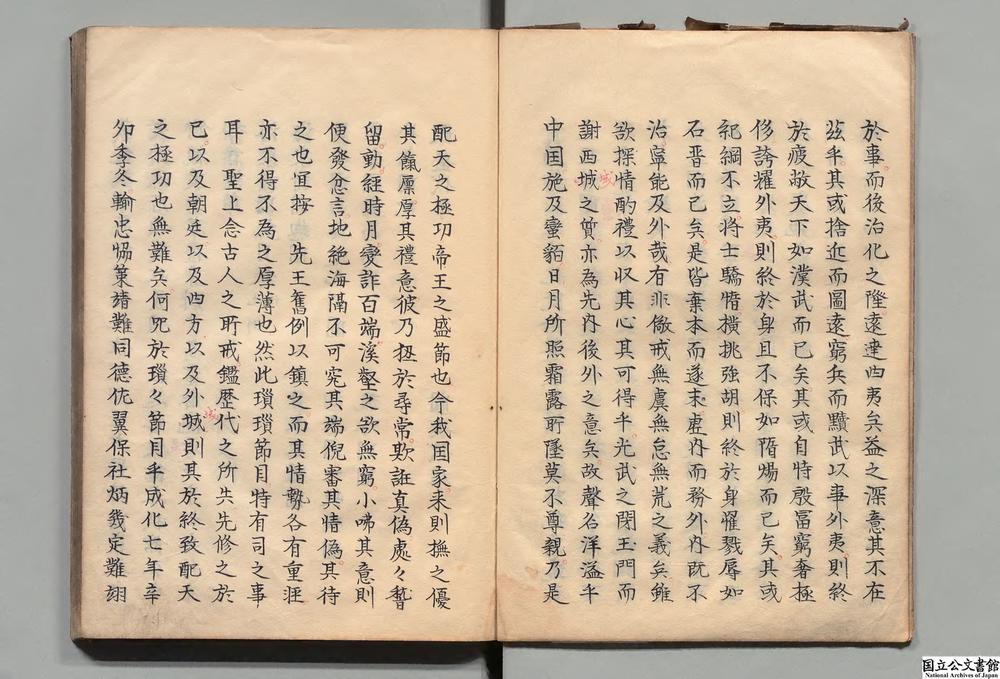 於事而後治化之隆遠達四夷矣益之深意其不在
玆乎其或捨近而圖遠窮兵而黷武以事外夷則終
於疲敝天下如漢武而已矣其或自恃殷富窮奢極
侈誇耀外夷則終於身且不保如隋煬而已矣其或
紀綱不立將士驕惰橫挑強胡則終於身罹戮辱如
石晋而已矣是皆棄本而遂末虛內而務外內既不
治寧能及外哉有非儆戒無虞無怠無荒之義矣雖
欲探情酌禮以収其心其可得乎光武之閉玉門而
謝西城之質亦為先內後外之意矣故聲名洋溢乎
域
中国施及蠻貊日月所照霜露所墜莫不尊親乃是
配天之極功帝王之盛節也今我国家来則撫之優
其餼廪厚其禮意彼乃狃於尋常欺誑真偽處々暫
留動經時月變詐百端溪壑之欲無窮小咈其意則
便發忿言地絶海隔不可究其端倪審其情偽其待
之也宜按先王舊例以鎮之而其情勢各有重
亦不得不為之厚薄也然此瑣瑣節目特有司之事
耳聖上念古人之所戒鑑歴代之所失先修之於
已以及朝廷以及四方以及外城則其於終致配天
域
之極功也無難矣何况於瑣々節目乎成化七年辛
卯季冬輸忠協策靖難同德佐翼保社炳幾定難翊